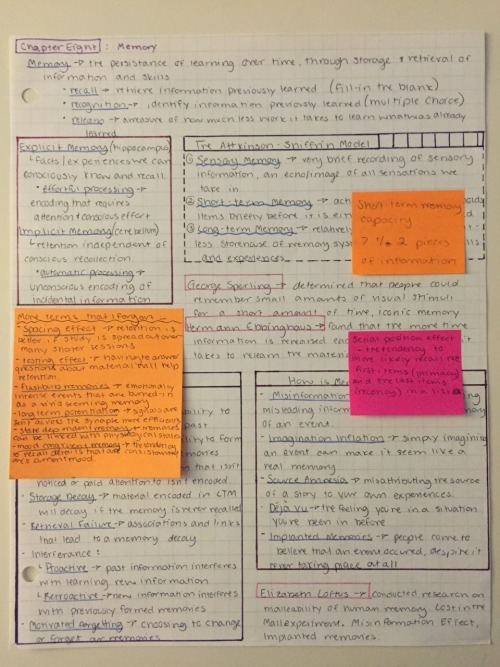 Chapter Eight: Memory
Memory → the persistance of learning over time, through storage & retrieval of
information and skills
• recall → retrieve information previously learned (fill-in the blank)
• recognition → identify information previously learned (multiple choice)
• relearn → a measure of how much less work it takes to learn what was already
learned
Explicit Memory (hippocampus)
↳ facts/experiences we can
consciously know and recall
• effortful processing →
encoding that requires
attention & conscious effort
Implicit Memory (cerebellum)
↳ retention independent of
conscious recollection
• automatic processing →
unconscious encoding of
incidental information
The Attkinson-Shiffrin Model
① Sensory Memory → very brief recording of sensory
information, an echo/image of all sensations we
take in.
② Short-term Memory →
items briefly before it is
③ Long-term Memory → relatively
less storehouse of memory
and experiences
Short-term memory
capacity
7 +/- 2 pieces
of information
George Sperling → determined that people could
remember small amounts of visual stimuli
for a short amount of time, iconic memory
Hermann Ebbinghaus → found that the more time
information is rehearsed
takes to relearn the
Serial position effect
→ the tendency to
more likely recall the
first items (primacy)
and the last items
(recency) in a list
More terms that I forgot
- Spacing effect → retention is
better if study is spread out over
many shorter sessions
- testing effect → having to answer
questions about material will help
retention
- flashbulb memories → emotionally
intense events that are burned in
as a vivid seeming memory
- long term potentiation → signals are
sent across the synapse more efficiently
- state dependent memory → memories
can be linked with physical states
- mood congruent memory → the tendency
to recall details that are consistent
with current mood
ability to
past
ability to form
memories
that isn't
noticed or paid attention to isn't encoded
- Storage Decay → material encoded in LTM
will decay if the memory is never recalled
- Retrieval Failure → associations and links
that lead to a memory decay
- Interferance:
↳ Proactive → past information interferes
with learning new information
↳ Retroactive → new information interferes
with previously formed memories
- Motivated forgetting → choosing to change
or forget our memories
How is
- Misinformation
misleading
of an event.
- Imagination Inflation → simply imagining
an event can make it seem like a
real memory
- Source Amnesia → misattributing the source
of a story to your own experiences.
- Déjà vu → the feeling you're in a situation
you've been in before
- Implanted Memories → people come
to believe that an event occured, despite it
never taking place at all
Elizabeth Loftus → conducted research on
malleability of human memory. Lost in the
Mall experiment. Misinformation Effect,
Implanted memories.